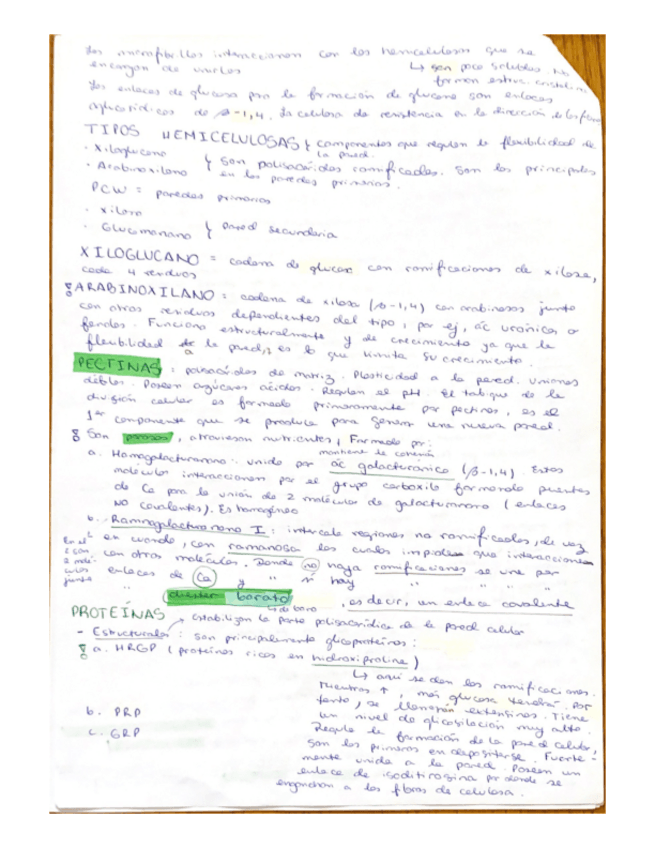 Las microfibrillas interaccionan con las hemicelulosas que se
encargan de unirlas ↳ son poco solubles. No
forman estruc. cristalina
Los enlaces de glucosa para la formación de glucano son enlaces
glicosídicos de β-1,4. La celulosa da resistencia en la dirección de las fibras
TIPOS HEMICELULOSAS } componentes que regulan la flexibilidad de
la pared.
· Xiloglucano
· Arabinoxilano } son polisacáridos ramificados. Son los principales
en las paredes primarias.
PCW = paredes primarias
· xilano
· Glucomanano } pared secundaria
XILOGLUCANO = cadena de glucosa con ramificaciones de xilosa,
cada 4 residuos
ARABINOXILANO: cadena de xilosa (β-1,4) con arabinosas junto
con otros residuos dependientes del tipo, por ej, ác urónicos o
fenoles. Funciona estructuralmente y de crecimiento ya que la
flexibilidad de la pared, es lo que limita su crecimiento.
PECTINAS: polisacáridos de matriz. Plasticidad a la pared. Uniones
débiles. Poseen azúcares ácidos. Regulan el pH. El tabique de la
división celular es formado primeramente por pectinas, es el
1er componente que se produce para generar una nueva pared.
Son porosas, atraviesan nutrientes, Formado por:
mantiene la cohesión
a. Homogalacturonano: unido por ác galacturónico (β-1,4). Estas
moléculas interaccionan por el grupo carboxilo formando puentes
de Ca para la unión de 2 moléculas de galacturonano (enlaces
no covalentes). Es homogéneo
b. Ramnogalacturonano I: intercala regiones no ramificadas, de vez
en cuando, con ramanosa las cuales impiden que interaccionen
con otras moléculas. Donde no haya ramificaciones se une por
enlaces de Ca y " si hay " " "
" diester borato, es decir, un enlace covalente
↳ de boro
PROTEINAS estabilizan la parte polisacarídica de la pared celular
- Estructurales: son principalmente glicoproteínas:
a. HRGP (proteínas ricas en hidroxiprolina)
↳ aquí se dan las ramificaciones.
Mientras ↑, más glucosa tendrá. Por
tanto, se llamarán extensinas. Tiene
un nivel de glicosilación muy alto.
b. PRP
Regula la formación de la pared celular,
c. GRP
son las primeras en depositarse. Fuerte-
mente unida a la pared. Poseen un
enlace de isoditirosina por donde se
enganchan a las fibras de celulosa.